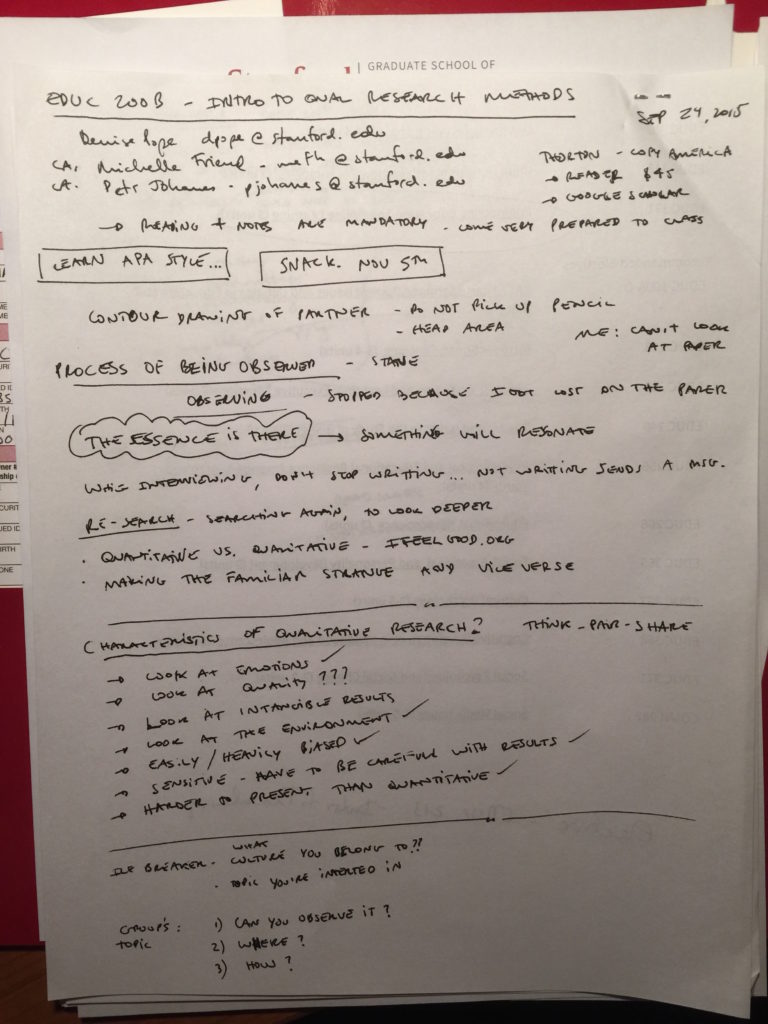 GRADUATE SCHOOL OF
EDUC 200B - INTRO TO QUAL RESEARCH METHODS
SEP 24, 2015
Denise Pope dpope@stanford.edu
CA. Michelle Friend - mefh@stanford.edu
CA. Petr Johanes - pjohanes@stanford.edu
THORTON - COPY AMERICA
→ READER $45
→ GOOGLE SCHOLAR
→ READING + NOTES ARE MANDATORY - COME VERY PREPARED TO CLASS
LEARN APA STYLE...
SNACK. NOV 5TH
CONTOUR DRAWING OF PARTNER - DO NOT PICK UP PENCIL
- HEAD AREA
ME: CAN'T LOOK
AT PAPER
PROCESS OF BEING OBSERVED - STARE
OBSERVING - STOPPED BECAUSE I GOT LOST ON THE PAPER
THE ESSENCE IS THERE → SOMETHING WILL RESONATE
WHIE INTERVIEWING, DON'T STOP WRITTING... NOT WRITTING SENDS A MSG.
RE-SEARCH - SEARCHING AGAIN, TO LOOK DEEPER
· QUANTITATIVE VS. QUALITATIVE - IFEELGOOD.ORG
· MAKING THE FAMILIAR STRANGE AND VICE VERSE
CHARACTERISTICS OF QUALITATIVE RESEARCH? THINK-PAIR-SHARE
→ LOOK AT EMOTIONS ✓
→ LOOK AT QUALITY ???
→ LOOK AT INTANGIBLE RESULTS
→ LOOK AT THE ENVIRONMENT ✓
→ EASILY / HEAVILY BIASED ✓
→ SENSITIVE - HAVE TO BE CAREFULL WITH RESULTS ✓
→ HARDER TO PRESENT THAN QUANTITATIVE ✓
WHAT
ICE BREAKER - CULTURE YOU BELONG TO??
· TOPIC YOU'RE INTERTED IN
GROUP'S: 1) CAN YOU OBSERVE IT?
TOPIC 2) WHERE?
3) HOW?